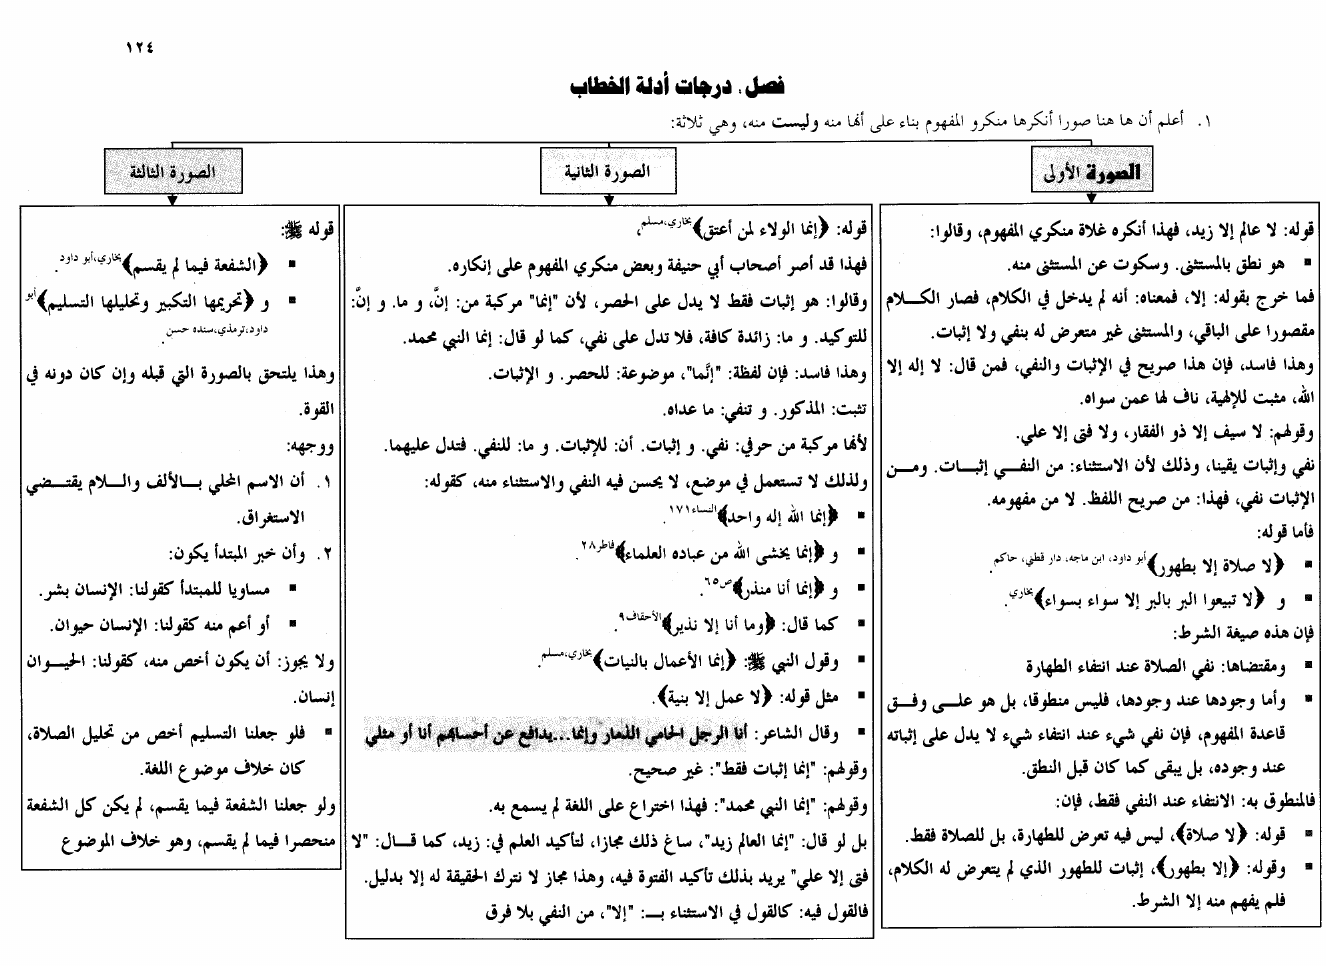 ١٢٤
فصل، درجات أدلة الخطاب
١. أعلم أن ها هنا صورا أنكرها منكرو المفهوم بناء على أنها منه وليست منه، وهي ثلاثة:
الصورة الأولى
قوله: لا عالم إلا زيد، فهذا أنكره غلاة منكري المفهوم، وقالوا:
▪ هو نطق بالمستثنى. وسكوت عن المستثنى منه.
فما خرج بقوله: إلا، فمعناه: أنه لم يدخل في الكلام، فصار الكـــلام
مقصورا على الباقي، والمستثنى غير متعرض له بنفي ولا إثبات.
وهذا فاسد، فإن هذا صريح في الإثبات والنفي، فمن قال: لا إله إلا
الله، مثبت للإلهية، ناف لها عمن سواه.
وقولهم: لا سيف إلا ذو الفقار، ولا فتى إلا علي.
نفي وإثبات يقينا، وذلك لأن الاستثناء: من النفـــي إثبـــات. ومـــن
الإثبات نفي، فهذا: من صريح اللفظ. لا من مفهومه.
فأما قوله:
▪ ﴿لا صلاة إلا بطهور﴾ أبو داود، ابن ماجه، دار قطني، حاكم.
▪ و ﴿لا تبيعوا البر بالبر إلا سواء بسواء﴾ بخاري.
فإن هذه صيغة الشرط:
▪ ومقتضاها: نفي الصلاة عند انتفاء الطهارة
▪ وأما وجودها عند وجودها، فليس منطوقا، بل هو علـــى وفـــق
قاعدة المفهوم، فإن نفي شيء عند انتفاء شيء لا يدل على إثباته
عند وجوده، بل يبقى كما كان قبل النطق.
فالمنطوق به: الانتفاء عند النفي فقط، فإن:
▪ قوله: ﴿لا صلاة﴾، ليس فيه تعرض للطهارة، بل للصلاة فقط.
▪ وقوله: ﴿إلا بطهور﴾، إثبات للطهور الذي لم يتعرض له الكلام،
فلم يفهم منه إلا الشرط.
الصورة الثانية
قوله: ﴿إنما الولاء لمن أعتق﴾ بخاري، مسلم،
فهذا قد أصر أصحاب أبي حنيفة وبعض منكري المفهوم على إنكاره.
وقالوا: هو إثبات فقط لا يدل على الحصر، لأن "إنما" مركبة من: إنَّ، و ما. و إنَّ:
للتوكيد. و ما: زائدة كافة، فلا تدل على نفي، كما لو قال: إنما النبي محمد.
وهذا فاسد: فإن لفظة: "إنَّما"، موضوعة: للحصر. و الإثبات.
تثبت: المذكور. و تنفي: ما عداه.
لأنها مركبة من حرفي: نفي. و إثبات. أن: للإثبات. و ما: للنفي. فتدل عليهما.
ولذلك لا تستعمل في موضع، لا يحسن فيه النفي والاستثناء منه، كقوله:
▪ ﴿إنما الله إله واحد﴾ النساء١٧١.
▪ و ﴿إنما يخشى الله من عباده العلماء﴾ فاطر٢٨.
▪ و ﴿إنما أنا منذر﴾ ص٦٥.
▪ كما قال: ﴿وما أنا إلا نذير﴾ الأحقاف٩.
▪ وقول النبي ﷺ: ﴿إنما الأعمال بالنيات﴾ بخاري، مسلم.
▪ مثل قوله: ﴿لا عمل إلا بنية﴾.
▪ وقال الشاعر: أنا الرجل الحامي الذمار وإنما...يدافع عن أحسابهم أنا أو مثلي
وقولهم: "إنما إثبات فقط": غير صحيح.
وقولهم: "إنما النبي محمد": فهذا اختراع على اللغة لم يسمع به.
بل لو قال: "إنما العالم زيد"، ساغ ذلك مجازا، لتأكيد العلم في: زيد، كما قـــال: "لا
فتى إلا علي" يريد بذلك تأكيد الفتوة فيه، وهذا مجاز لا نترك الحقيقة له إلا بدليل.
فالقول فيه: كالقول في الاستثناء بـ: "إلا"، من النفي بلا فرق
الصورة الثالثة
قوله ﷺ:
▪ ﴿الشفعة فيما لم يقسم﴾ بخاري، أبو داود.
▪ و ﴿تحريمها التكبير وتحليلها التسليم﴾ أبو
داود، ترمذي، سنده حسن.
وهذا يلتحق بالصورة التي قبله وإن كان دونه في
القوة.
ووجهه:
١. أن الاسم المحلي بـــالألف والـــلام يقتـــضي
الاستغراق.
٢. وأن خبر المبتدأ يكون:
▪ مساويا للمبتدأ كقولنا: الإنسان بشر.
▪ أو أعم منه كقولنا: الإنسان حيوان.
ولا يجوز: أن يكون أخص منه، كقولنا: الحيـــوان
إنسان.
▪ فلو جعلنا التسليم أخص من تحليل الصلاة،
كان خلاف موضوع اللغة.
ولو جعلنا الشفعة فيما يقسم، لم يكن كل الشفعة
منحصرا فيما لم يقسم، وهو خلاف الموضوع